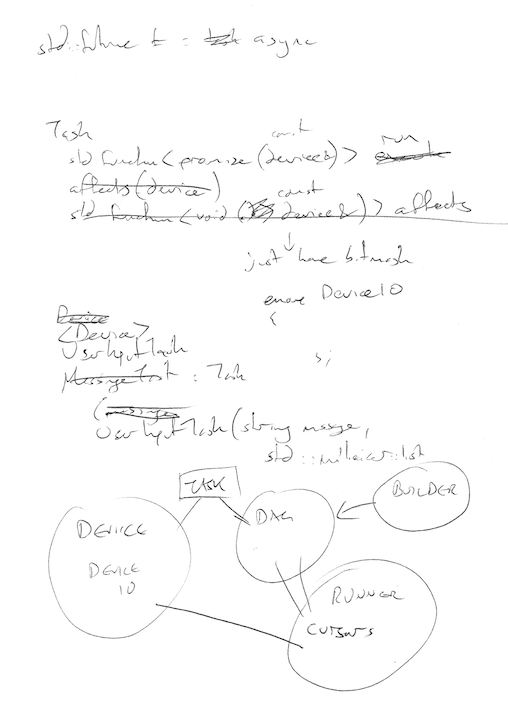 std::future t = async
Task
const
std function<promise(device&)> run
affects(device)
const
std function<void (device&)> affects
just have bitmask
enum DeviceIO
{
};
Device
<Device>
UserInputTask
MessageTask : Task
(message
UserInputTask(string message,
std::initializer_list
TASK
DAG
BUILDER
DEVICE
DEVICE
IO
RUNNER
CURSORS